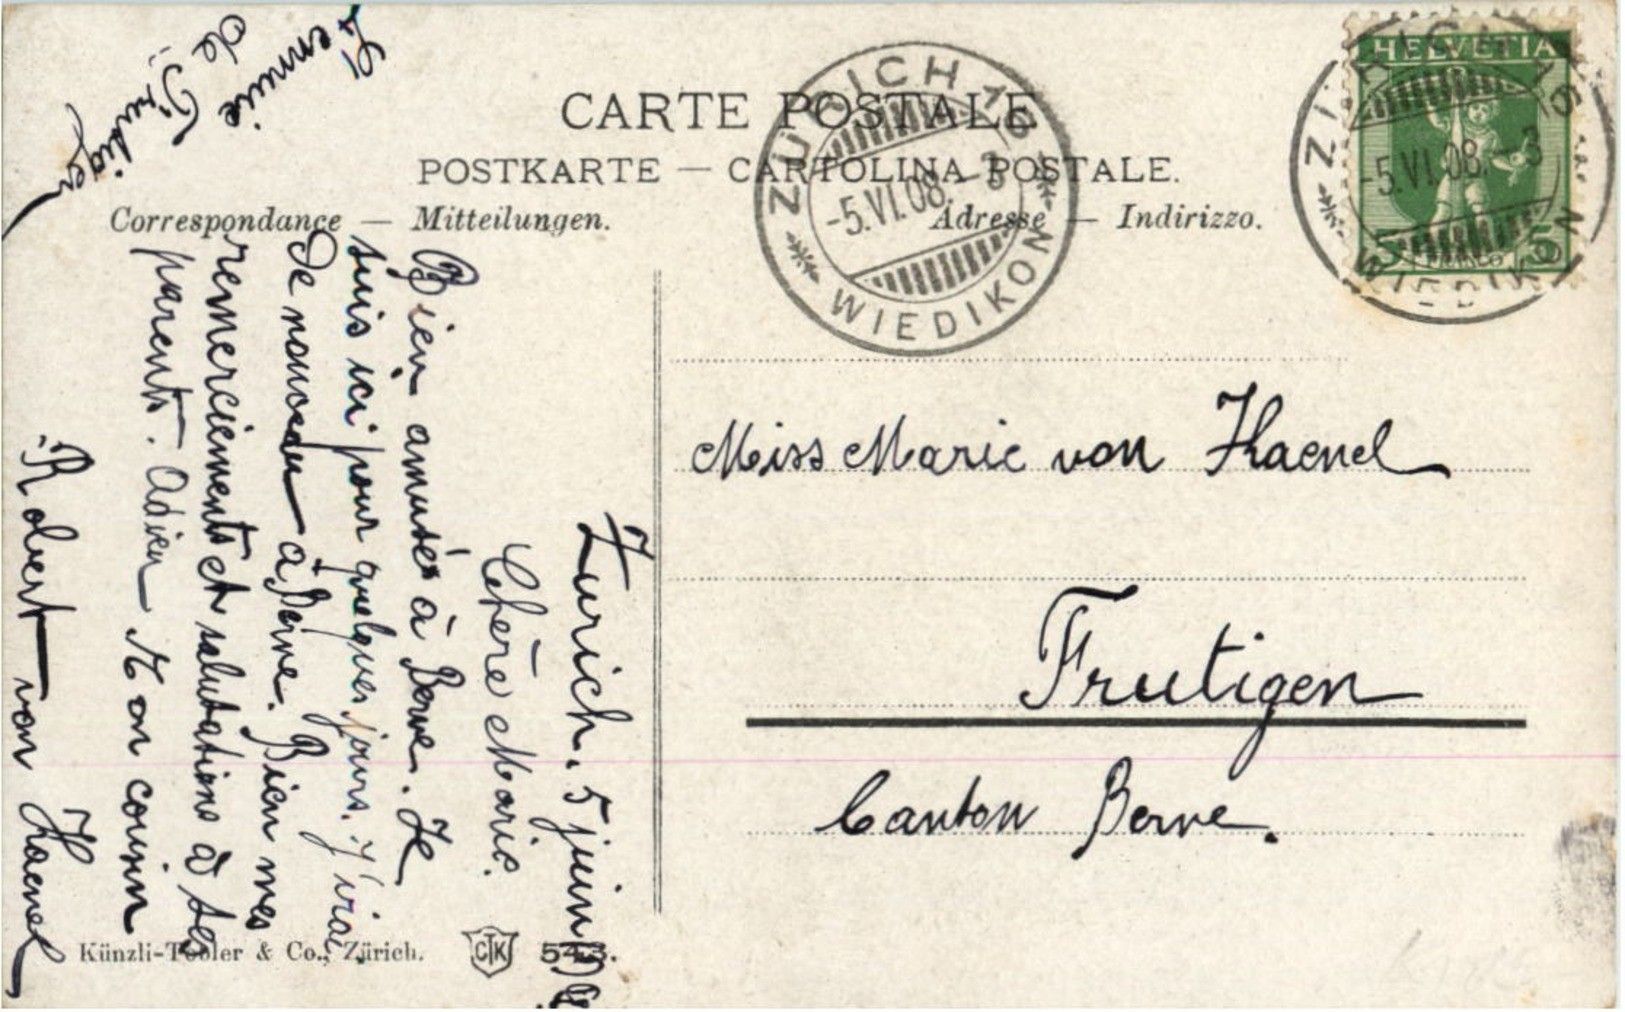 CARTE POSTALE
POSTKARTE — CARTOLINA POSTALE.
Correspondance — Mitteilungen.
Adresse — Indirizzo.
ZÜRICH 16
-5.VI.08.-3
WIEDIKON
HELVETIA
5 5
-5.VI.08.-3
WIEDIKON
Zurich, 5 juin 08
Chère Marie.
Bien amusés à Berne. Je
suis ici pour quelques jours. J'irai
de nouveau à Berne. Bien mes
remerciements et salutations à tes
parents. Adieu Mon cousin
Robert von Kaenel
de Frutigen
Miss Marie von Kaenel
Frutigen
Canton Berne.
Künzli-Tobler & Co., Zürich.
CTK
543.